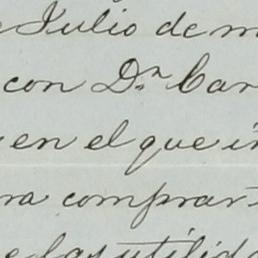 e Julio de m
con Dn. Car
en el que in
ra comprar
e las utilid